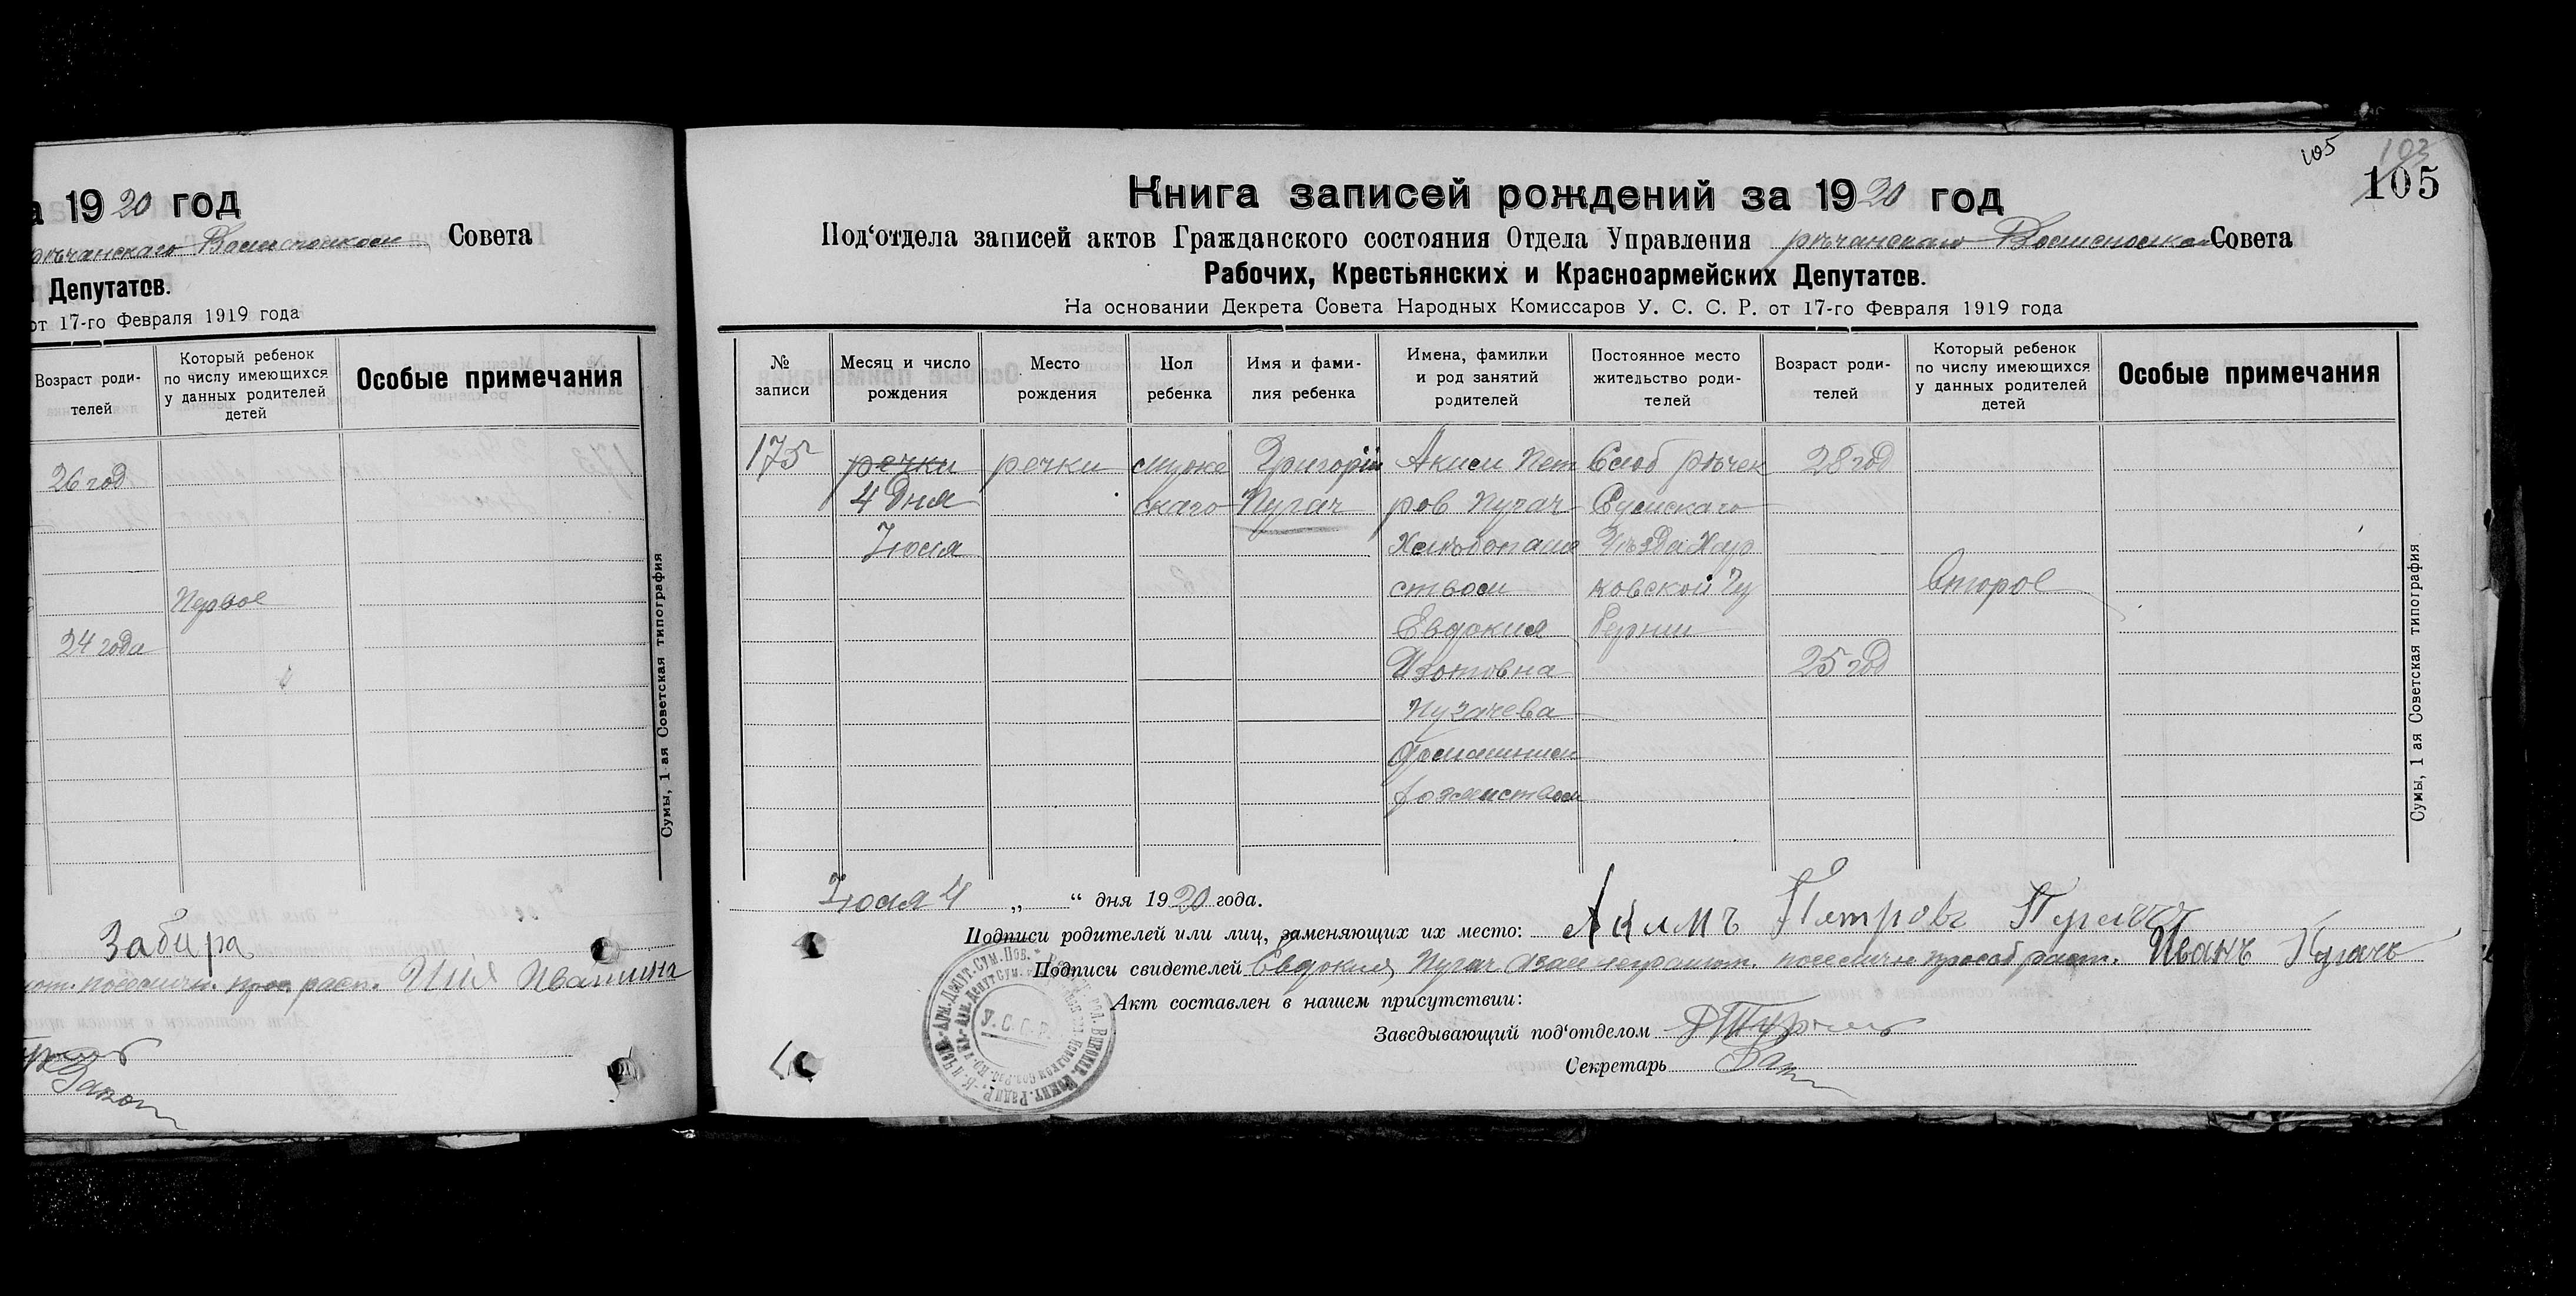 а 1920 год
рѣчанскаго Совета
Депутатов.
от 17-го Февраля 1919 года
Возраст роди-
телей
Который ребенок
по числу имеющихся
у данных родителей
детей
Особые примечания
26 год
Первое
24 года
Сумы, 1 ая Советская типография
Забира
расп.
105
103
105
Книга записей рождений за 1920 год
Под‘отдела записей актов Гражданского состояния Отдела Управления рѣчанскаго Совета
Рабочих, Крестьянских и Красноармейских Депутатов.
На основании Декрета Совета Народных Комиссаров У. С. С. Р. от 17-го Февраля 1919 года
№
записи
Месяц и число
рождения
Место
рождения
Пол
ребенка
Имя и фами-
лия ребенка
Имена, фамилии
и род занятий
родителей
Постоянное место
жительство роди-
телей
Возраст роди-
телей
Который ребенок
по числу имеющихся
у данных родителей
детей
Особые примечания
175
речки
4 Дня
Июля
речки
мужс
скаго
Григорій
Пугач
Аким Пет
ров Пугач
Хлебопаше
ством
Евдокия
Изотовна
Пугачева
домашним
хозяйством
Слоб рѣчек
Сумскаго
Уѣзда Хар
ковской Гу
бернии
28 год
25 год
Второе
Сумы, 1 ая Советская типография
Июля 4 „ “ дня 1920 года.
Подписи родителей или лиц, заменяющих их место: Акимъ Петровъ Пугачъ
Подписи свидетелей Евдокия Пугач неграмот. расп. Иванъ Пугачъ
Акт составлен в нашем присутствии:
Заведывающий под‘отделом
Секретарь
У.С.С.Р.